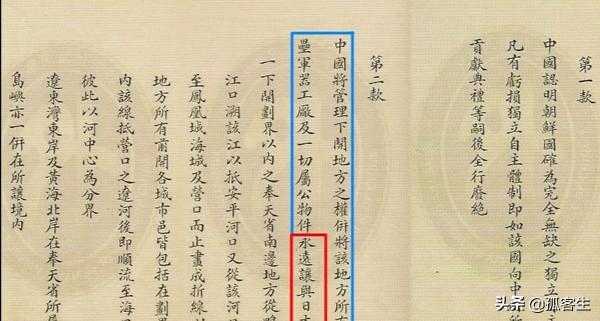 第一款
中國認明朝鮮國確為完全無缺之獨立自主
凡有虧損獨立自主體制即如該國向中國所
貢獻典禮等嗣後全行廢絕
第二款
中國將管理下開地方之權併將該地方所有
壘軍器工廠及一切屬公物件永遠讓與日本
一下開劃界以內之奉天省南邊地方從鴨
江口溯該江以抵安平河口又從該河
至鳳凰城海城及營口而止畫成折線以
地方所有前開各城市邑皆包括在劃界
內該線抵營口之遼河後即順流至海口
彼此以河中心為分界
遼東灣東岸及黃海北岸在奉天省所屬
島嶼亦一併在所讓境內
头条 @孤客生